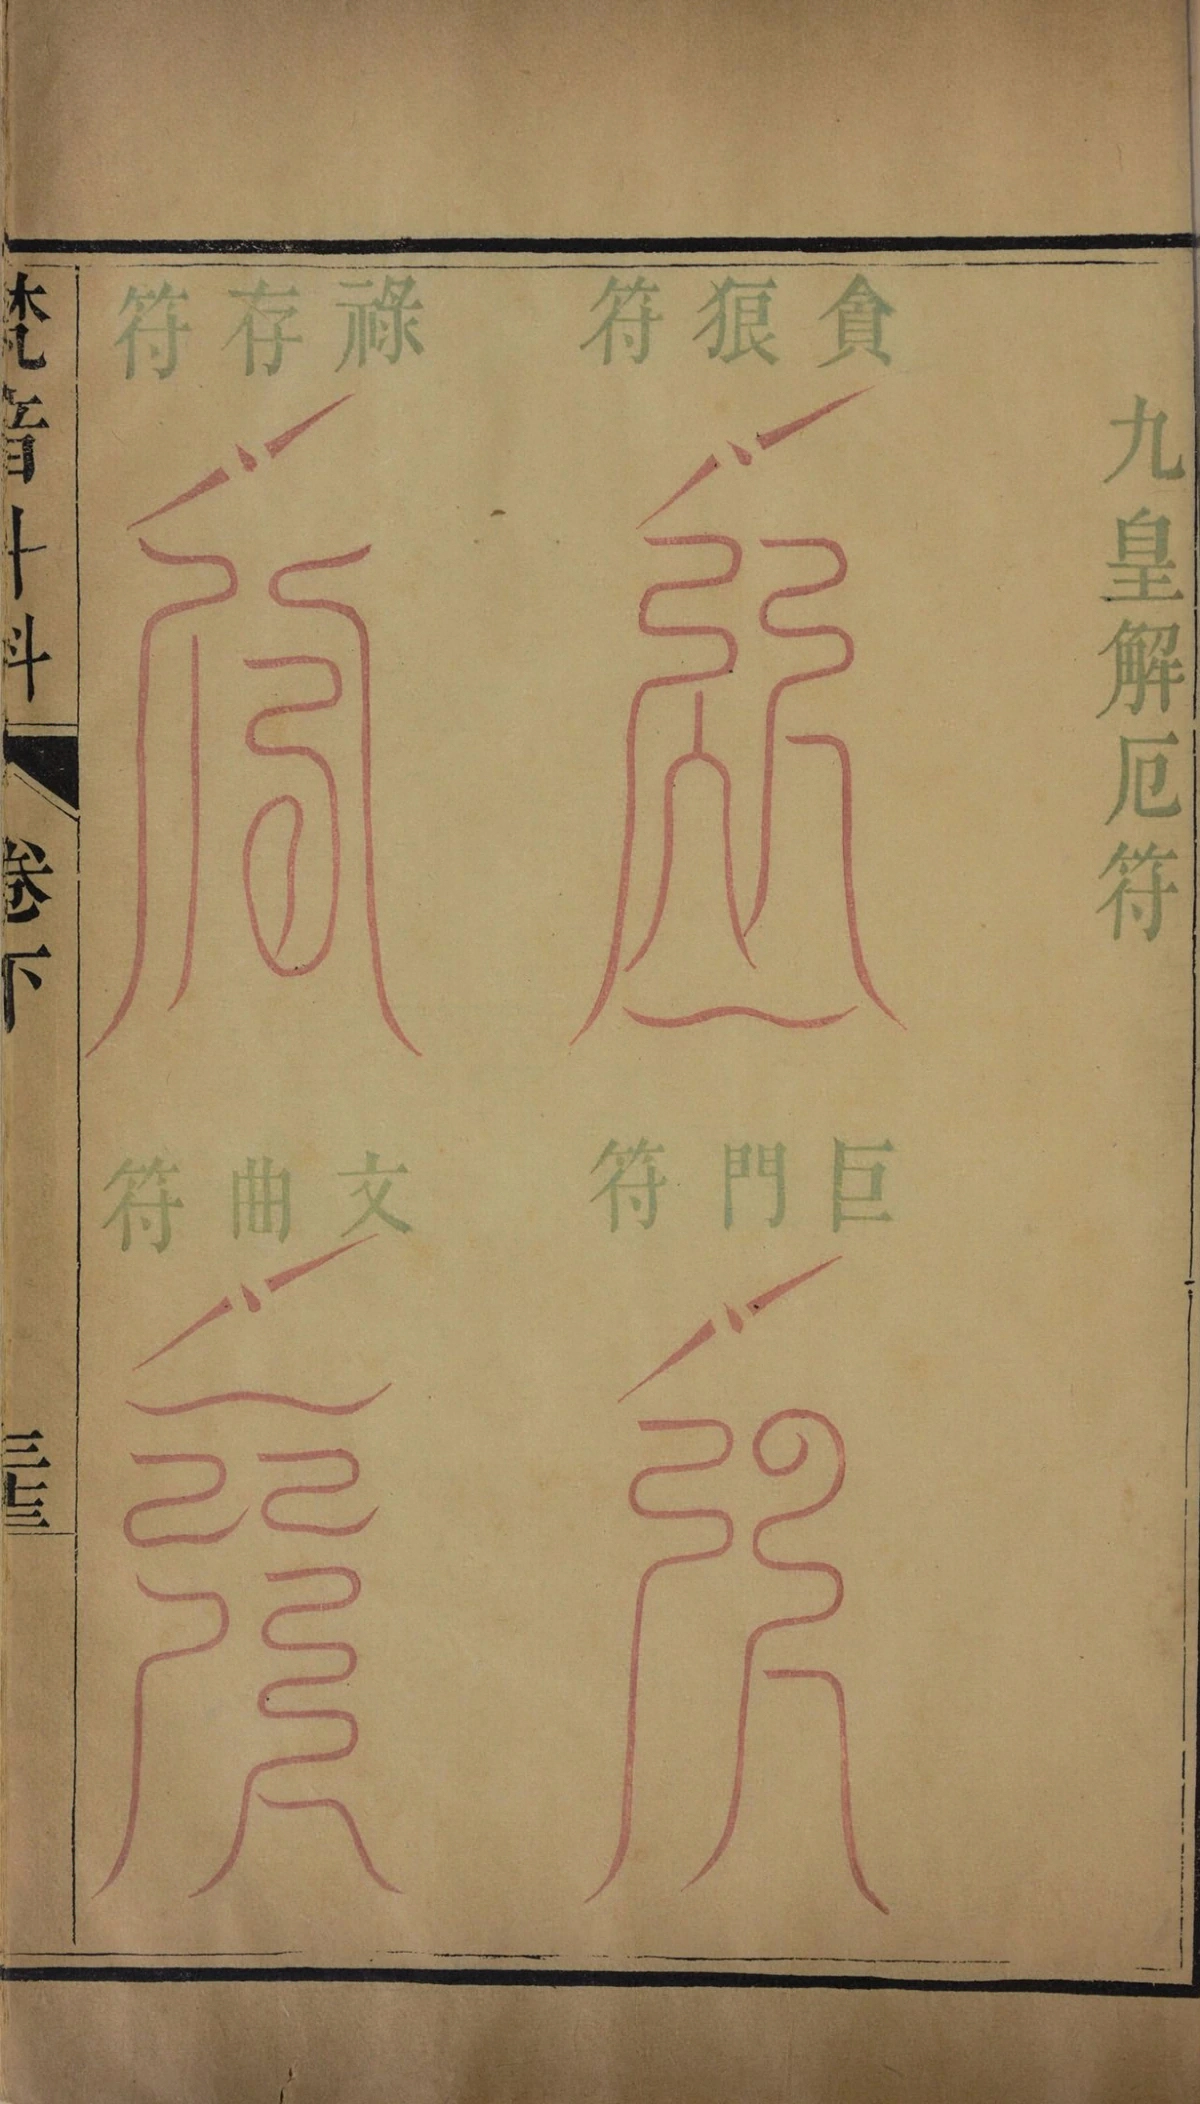 九皇解厄符
貪狼符
巨門符
祿存符
文曲符
梵音斗科
卷下
三十三